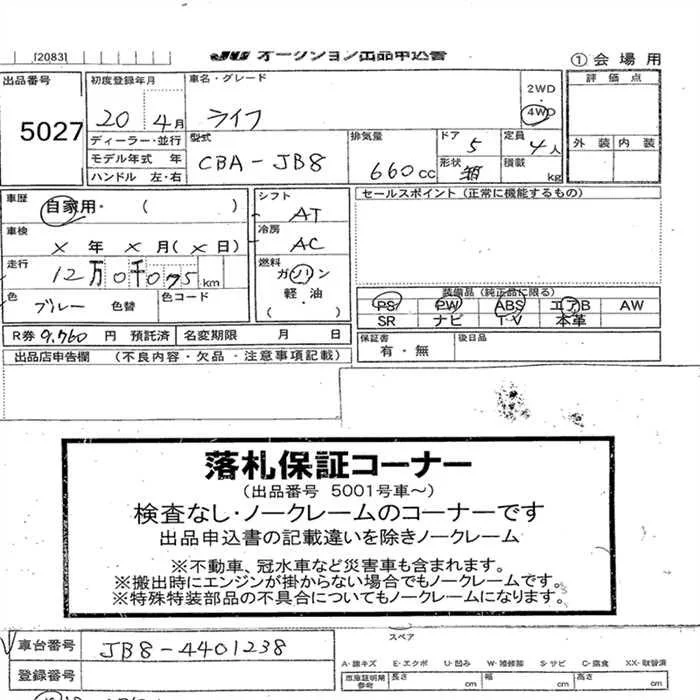 [2083]
JU オークション出品申込書
①会場用
出品番号
5027
初度登録年月
20 4月
車名・グレード
ライフ
2WD
4WD
評価点
外装 内装
ディーラー・並行
モデル年式 年
ハンドル 左・右
型式
CBA-JB8
排気量
660cc
ドア
5
形状
箱
定員
4人
積載
kg
車歴
自家用・( )
車検
×年 ×月(×日)
走行
12万0千075km
色
ブルー 色替
色コード
シフト
AT
冷房
AC
燃料
ガソリン
軽・油
( )
セールスポイント(正常に機能するもの)
装備品(純正品に限る)
PS PW ABS エアB AW
SR ナビ TV 本革
R券 9,760円 預託済
名変期限 月 日
保証書
有・無
後日品
出品店申告欄 (不良内容・欠品・注意事項記載)
落札保証コーナー
(出品番号 5001号車~)
検査なし・ノークレームのコーナーです
出品申込書の記載違いを除きノークレーム
※不動車、冠水車など災害車も含まれます。
※搬出時にエンジンが掛からない場合でもノークレームです。
※特殊特装部品の不具合についてもノークレームになります。
車台番号
JB8-4401238
登録番号
スペア
A-線キズ E-エクボ U-凹み W-補修跡 S-サビ C-腐食 XX-取替済
車庫証明用
参考
長さ cm
幅 cm
高さ cm